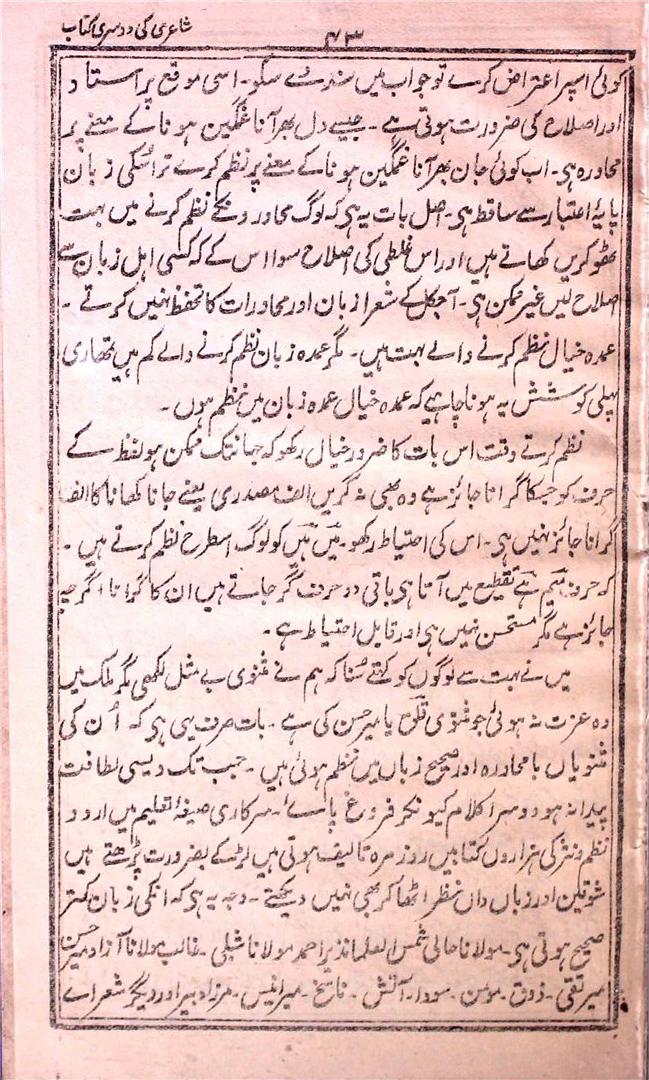 شاعری کی دوسری کتاب
۴۳
کوئی اسپر اعتراض کرے تو جواب میں سند دے سکو۔ اسی موقع پر استاد
اور اصلاح کی ضرورت ہوتی ہے ۔ جیسے دل بھر آنا غمگین ہونا کے معنے پر
محاورہ ہی۔ اب کوئی جان بھر آنا غمگین ہونا کے معنے پر نظم کرے تو اسکی زبان
پایۂ اعتبار سے ساقط ہی۔ اصل بات یہ ہی کہ لوگ محاورونکے نظم کرنے میں بہت
ٹھوکریں کھاتے ہیں اور اس غلطی کی اصلاح سوا اس کے کہ کسی اہل زبان سے
اصلاح لیں غیر ممکن ہی۔ آجکل کے شعرا زبان اور محاورات کا تحفظ نہیں کرتے ۔
عمدہ خیال نظم کرنے والے بہت ہیں ۔ مگر عمدہ زبان نظم کرنے والے کم ہیں تمھاری
پہلی کوشش یہ ہونا چاہیے کہ عمدہ خیال عمدہ زبان میں نظم ہوں ۔
نظم کرتے وقت اس بات کا ضرور خیال رکھو کہ جہانتک ممکن ہو لفظ کے
حرف کو جسکا گرانا جائز ہے وہ بھی نہ گریں الف مصدری یعنے جانا کھانا کا الف
گرانا جائز نہیں ہی۔ اس کی احتیاط رکھو۔ میں ہیں کو لوگ اسطرح نظم کرتے ہیں ۔
کہ حرف میم ہے تقطیع میں آتا ہی باقی دو حرف گر جاتے ہیں ان کا گرانا اگرچہ
جائز ہے مگر مستحسن نہیں ہی اور قابل احتیاط ہے ۔
میں نے بہت سے لوگوں کو کہتے سُنا کہ ہم نے مثنوی بے مثل لکھی مگر ملک میں
وہ عزت نہ ہوئی جو مثنوی قلق یا میر حسن کی ہے ۔ بات صرف یہی ہی کہ اُن کی
مثنویاں بامحاورہ اور صحیح زباں میں نظم ہوئی ہیں ۔ جب تک ویسی لطافت
پیدا نہ ہو دوسرا کلام کیونکر فروغ پائے۔ سرکاری صیغۂ تعلیم میں اردو
نظم ونثر کی ہزاروں کتابیں روزمرہ تالیف ہوتی ہیں لڑکے بضرورت پڑھتے ہیں
شوقین اور زباں داں نظر اٹھا کر بھی نہیں دیکھتے ۔ وجہ یہ ہی کہ انکی زبان کمتر
صحیح ہوتی ہی۔ مولانا حالی شمس العلما نذیر احمد مولانا شبلی ۔ غالب مولانا آزاد میر حسن
میر تقی ۔ ذوق ۔ مومن ۔ سودا ۔ آتش ۔ ناسخ ۔ میر انیس ۔ مرزا دبیر اور دیگر شعراے